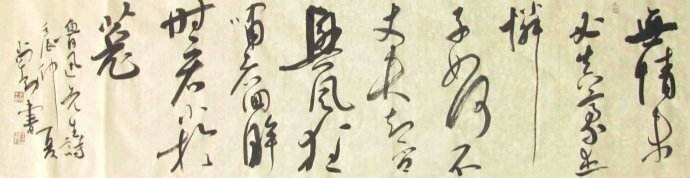 無情未
必真豪杰
憐
子如何不
丈夫知否
興風狂
嘯者回眸
時看小於
菟
魯迅先生詩
仲夏
書